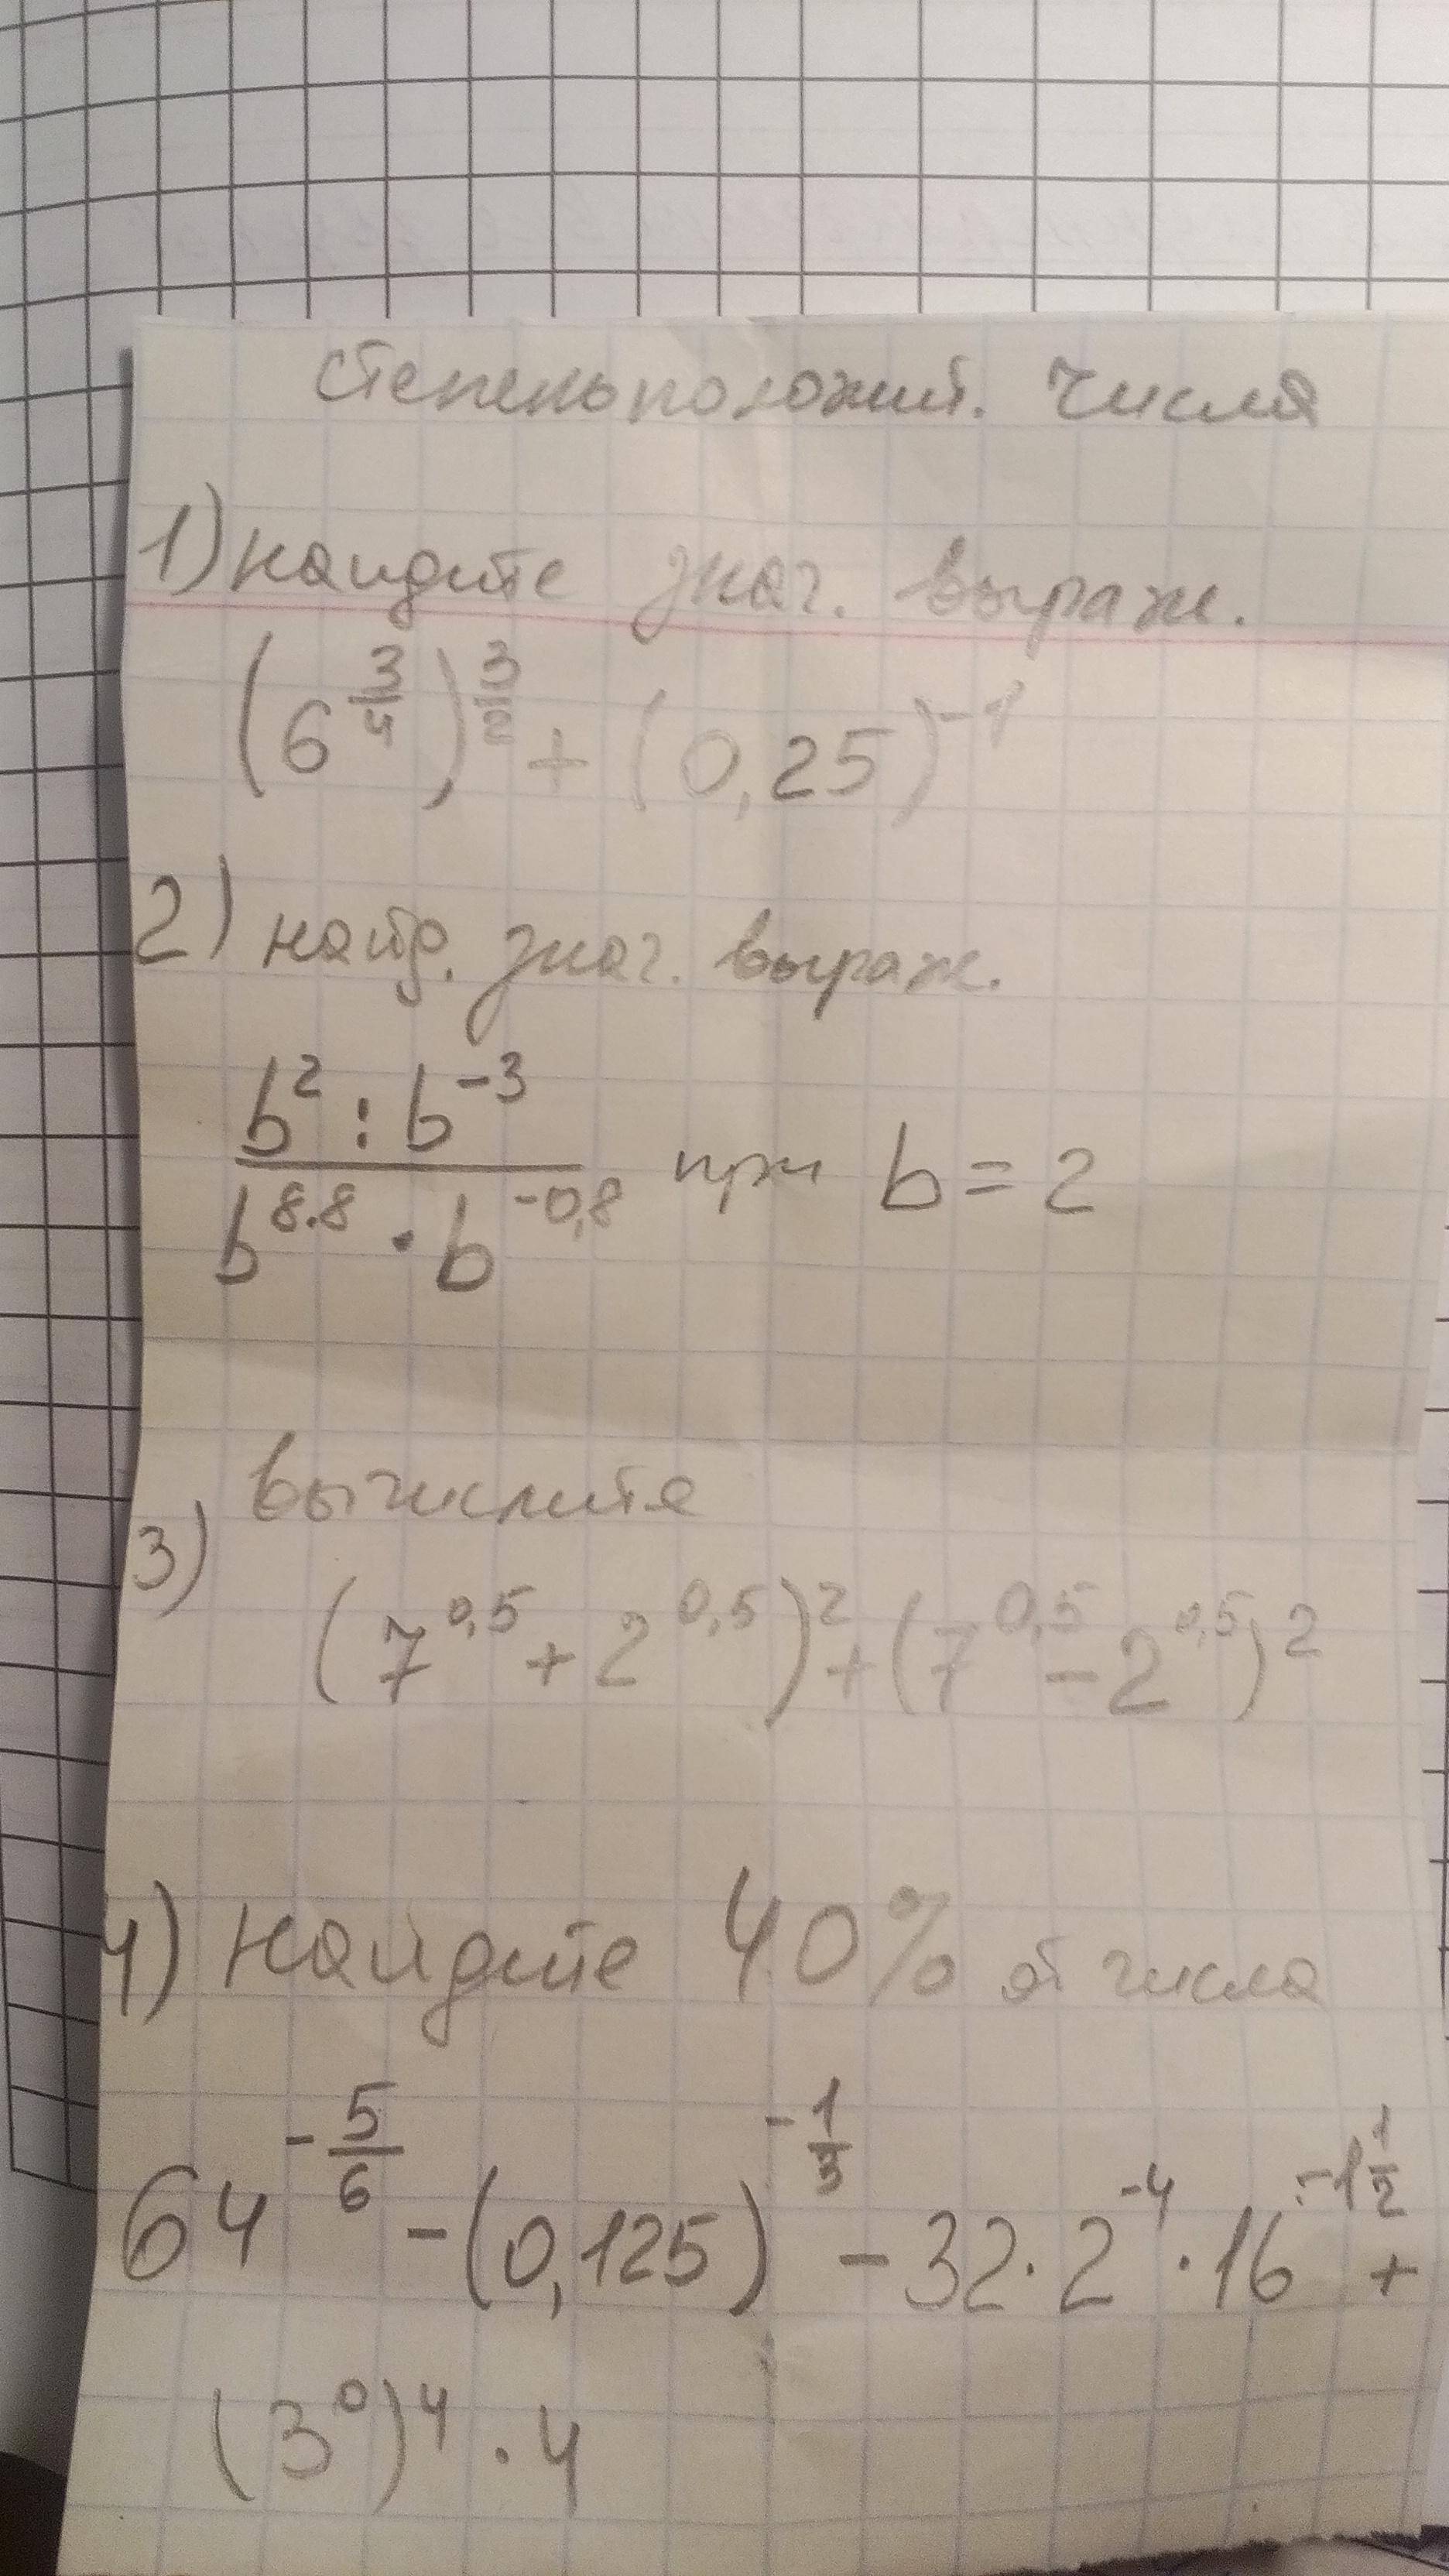 степень положит. числа
1) найдите знач. выраж.
(6^(3/4))^(3/2) + (0,25)^(-1)
2) найд. знач. выраж.
b^2 : b^(-3)
b^(8.8) · b^(-0,8) при b = 2
вычислите
3) (7^(0,5) + 2^(0,5))^2 + (7^(0,5) - 2^(0,5))^2
4) найдите 40% от числа
64^(-5/6) - (0,125)^(-1/3) - 32 · 2^(-4) · 16^(-1 1/2) +
(3^0)^4 · 4